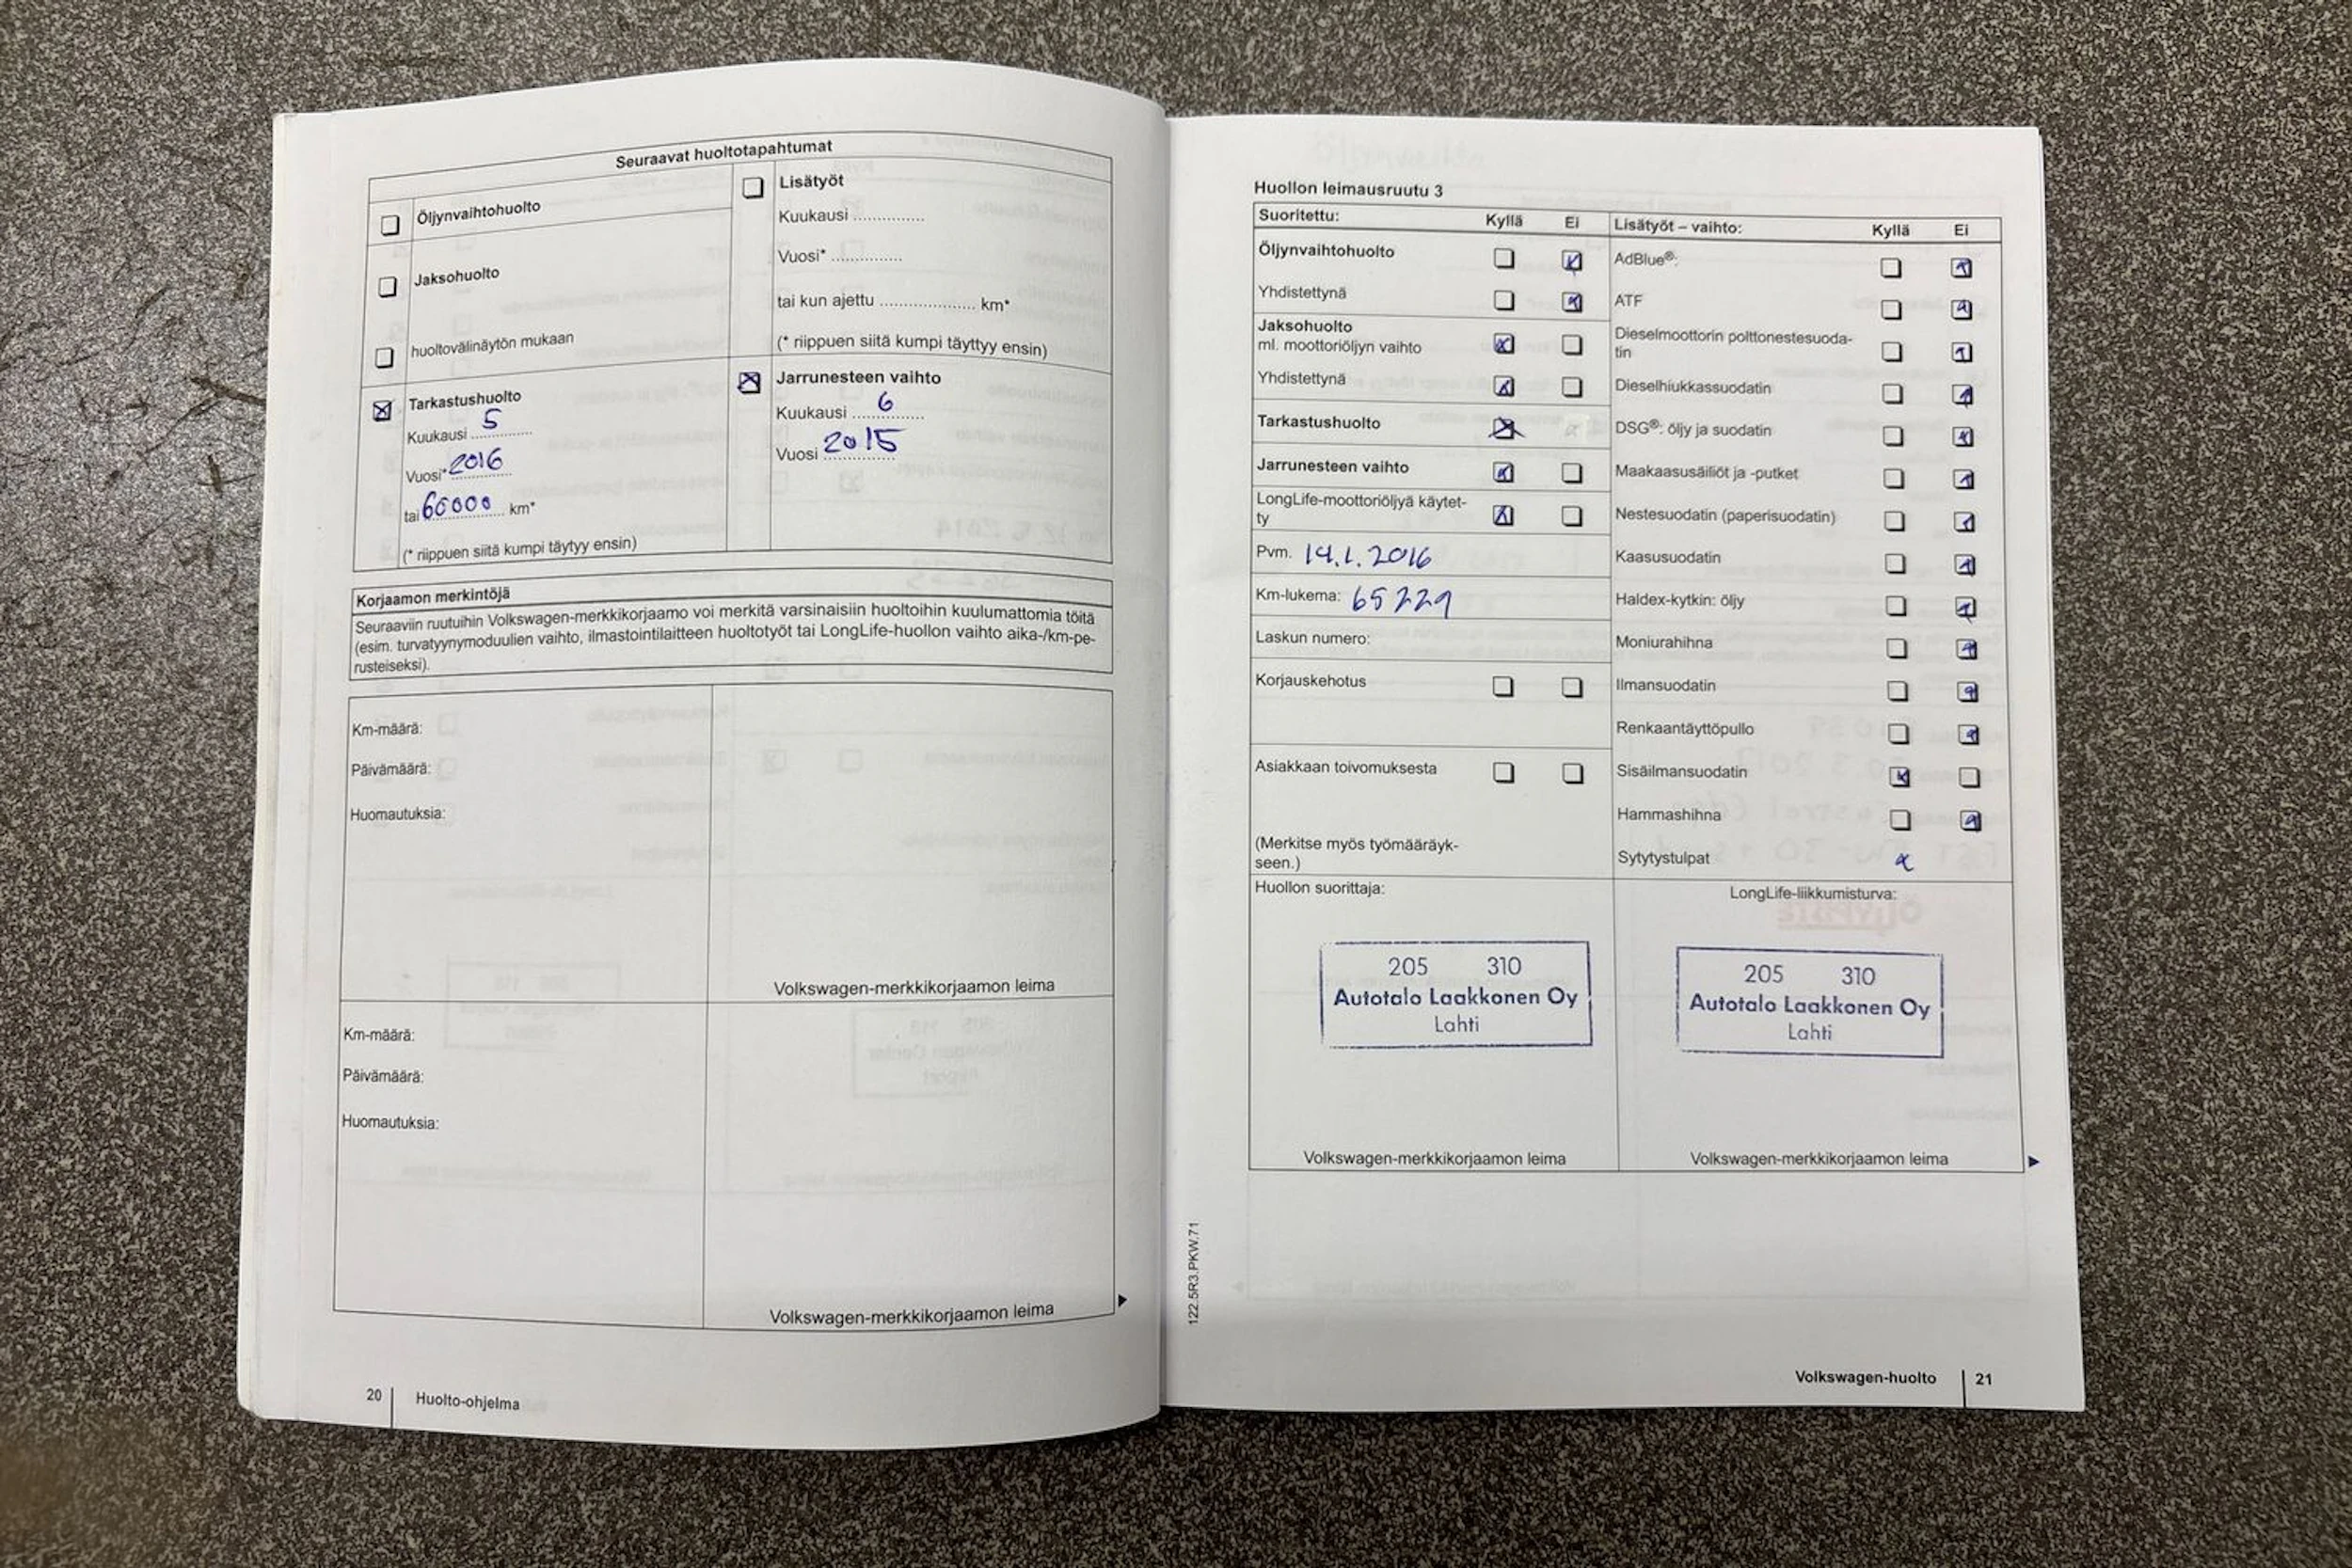 Seuraavat huoltotapahtumat
Öljynvaihtohuolto
Jaksohuolto
huoltovälinäytön mukaan
Lisätyöt
Kuukausi ..............
Vuosi* ..............
tai kun ajettu ................... km*
(* riippuen siitä kumpi täyttyy ensin)
Tarkastushuolto
Kuukausi 5
Vuosi* 2016
tai 60000 km*
(* riippuen siitä kumpi täytyy ensin)
Jarrunesteen vaihto
Kuukausi 6
Vuosi 2015
Korjaamon merkintöjä
Seuraaviin ruutuihin Volkswagen-merkkikorjaamo voi merkitä varsinaisiin huoltoihin kuulumattomia töitä
(esim. turvatyynymoduulien vaihto, ilmastointilaitteen huoltotyöt tai LongLife-huollon vaihto aika-/km-pe-
rusteiseksi).
Km-määrä:
Päivämäärä:
Huomautuksia:
Volkswagen-merkkikorjaamon leima
Km-määrä:
Päivämäärä:
Huomautuksia:
Volkswagen-merkkikorjaamon leima
20 Huolto-ohjelma
Huollon leimausruutu 3
Suoritettu: Kyllä Ei
Öljynvaihtohuolto
Yhdistettynä
Jaksohuolto
ml. moottoriöljyn vaihto
Yhdistettynä
Tarkastushuolto
Jarrunesteen vaihto
LongLife-moottoriöljyä käytet-
ty
Pvm. 14.1.2016
Km-lukema: 65229
Laskun numero:
Korjauskehotus
Asiakkaan toivomuksesta
(Merkitse myös työmääräyk-
seen.)
Lisätyöt – vaihto: Kyllä Ei
AdBlue®:
ATF
Dieselmoottorin polttonestesuoda-
tin
Dieselhiukkassuodatin
DSG®: öljy ja suodatin
Maakaasusäiliöt ja -putket
Nestesuodatin (paperisuodatin)
Kaasusuodatin
Haldex-kytkin: öljy
Moniurahihna
Ilmansuodatin
Renkaantäyttöpullo
Sisäilmansuodatin
Hammashihna
Sytytystulpat
Huollon suorittaja:
205 310
Autotalo Laakkonen Oy
Lahti
Volkswagen-merkkikorjaamon leima
LongLife-liikkumisturva:
205 310
Autotalo Laakkonen Oy
Lahti
Volkswagen-merkkikorjaamon leima
122.5R3.PKW.71
Volkswagen-huolto 21